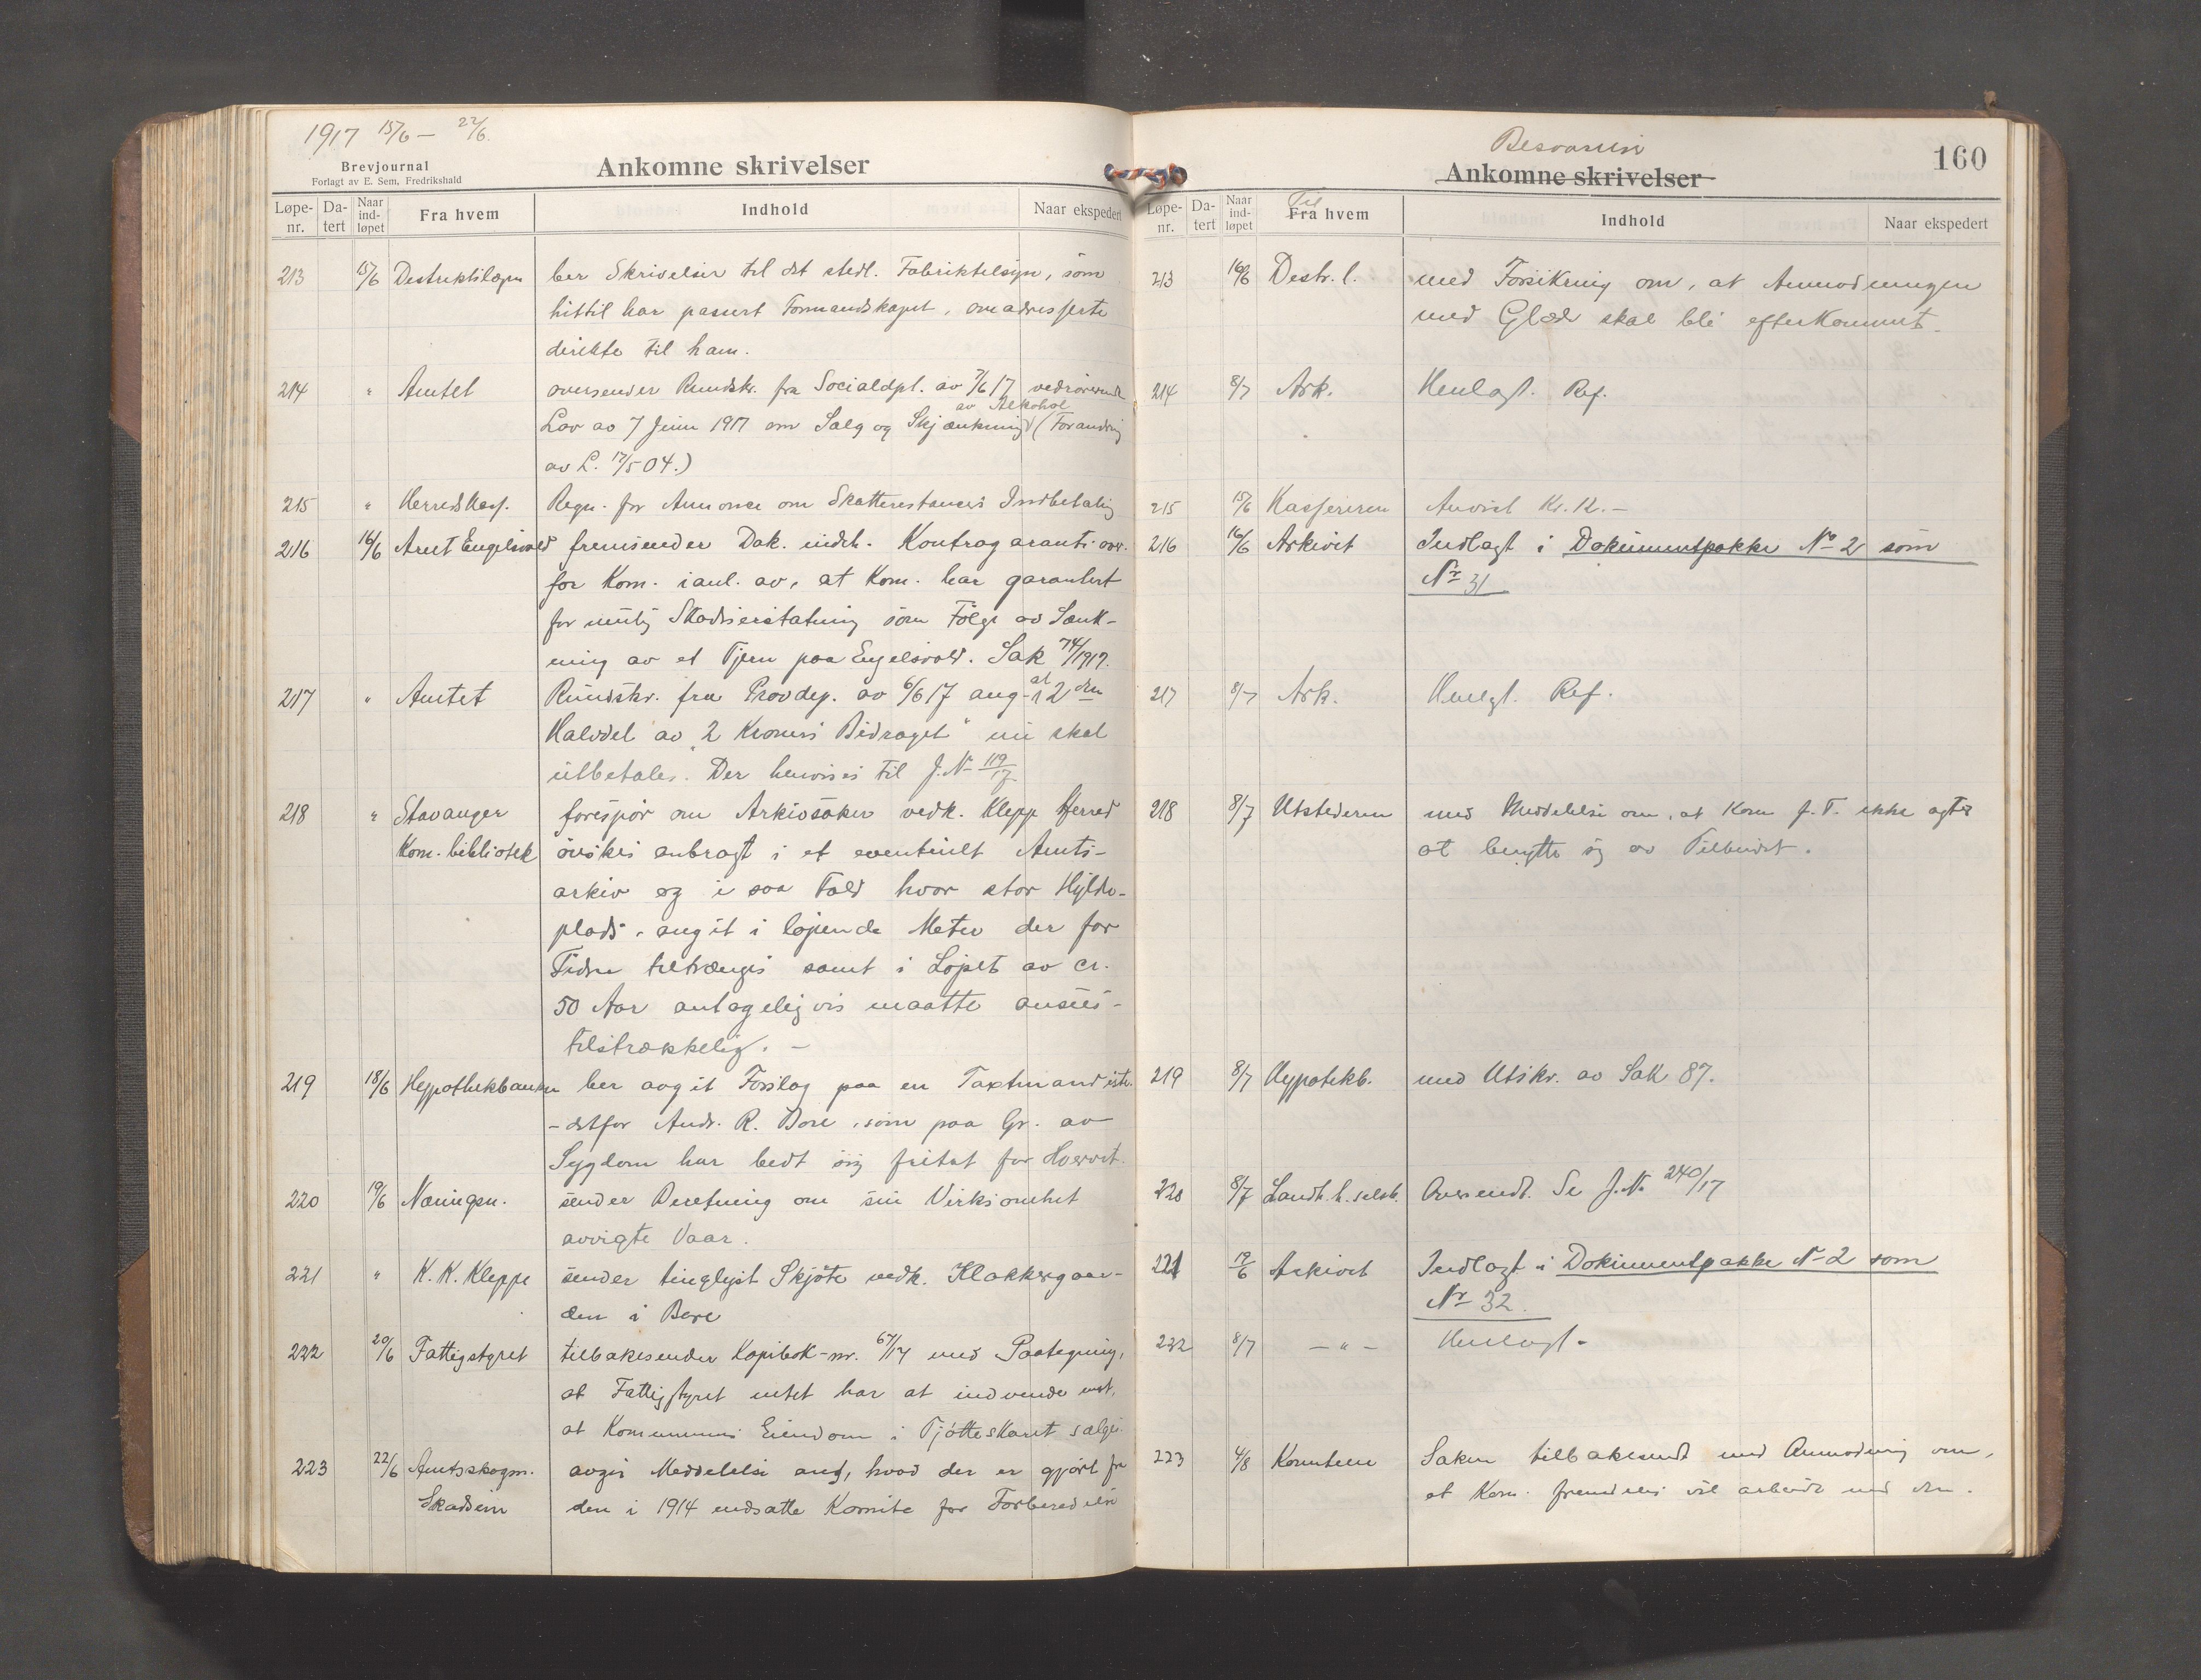 1917 15/6 – 22/6.
Brevjournal
Forlagt av E. Sem, Fredrikshald
Ankomne skrivelser
Løpe-nr. Da-tert Naar ind-løpet Fra hvem Indhold Naar ekspedert
213 15/6 ber Skrivelser til det stedl. Fabriktilsyn, som
hittil har passert Formandskapet, omadresserte
direkte til ham.
214 " Amtet oversender Rundskr. fra Socialdpt. av 7/6 17 vedrørende
av Alkohol
Lov av 7 Juni 1917 om Salg og Skjænkning (Forandring
av L. 17/5 04.)
215 " Herredskas. Regn. for Annonce om Skatterestancers Indbetaling
216 16/6 Arnt Engelsvold fremsender Dok. indeh. Kontragaranti over.
for Kom. i anl. av, at Kom. har garantert
for mulig Skadeserstatning som Følge av Sænk-
ning av et Tjern paa Engelsvold. Sak 74/1917.
217 " Amtet Rundskr. fra Provdep. av 6/6 17 ang. at 2den
Halvdel av "2 Kroners Bidraget" nu skal
utbetales. Der henvises til J.N. 119/17
218 " Stavanger forespør om Arkivsaker vedk. Klepp Herred
Kom. bibliotek ønskes anbragt i et eventuelt Amts-
arkiv og i saa Fald hvor stor Hylde-
plads, angit i løpende Meter der for
Tiden tiltrænges samt i Løpet av ca.
50 Aar antageligvis maatte ansees
tilstrækkelig. –
219 18/6 Hypothekbanken ber avgit Forslag paa en Taxtmand iste-
-detfor Andr. R. Bore, som paa Gr. av
Sygdom har bedt sig fritat for Hvervet.
220 19/6 Næringsn. sender Beretning om sin Virksomhet
avvigte Vaar.
221 " K. K. Kleppe sender tinglyst Skjøte vedk. Klokkergaar-
den i Bore
222 20/6 Fattigstyret tilbakesender Kopibok-nr. 67/17 med Paategning,
at Fattigstyret intet har at indvende mot,
at Kommunens Eiendom i Tjøtteskaret sælges.
223 22/6 Amtsskogm. avgir Meddelelse ang, hvad der er gjort fra
Skadsem den i 1914 nedsatte Komite for Forberedelse
Besvarelse
Ankomne skrivelser
160
Løpe-nr. Da-tert Naar ind-løpet Til Fra hvem Indhold Naar ekspedert
213 16/6 Destr. l. med Forsikring om, at Anmodningen
med Glæde skal bli efterkommet.
214 8/7 Ark. Henlagt. Ref.
215 15/6 Kassereren Anvist Kr. 12.–
216 16/6 Arkivet Indlagt i Dokumentpakke No 2 som
Nr 31
217 8/7 Ark. Henlgt. Ref.
218 8/7 Utstederen med Meddelelse om, at Kom f. T. ikke agter
at benytte sig av Tilbudet.
219 8/7 Hypotekb. med Utskr. av Sak 87.
220 8/7 Landh. h. selsk. Oversendt. Se J.N. 240/17
221 19/6 Arkivet Indlagt i Dokumentpakke N 2 som
Nr 32.
222 8/7 – " – Henlagt.
223 4/8 Komiteen Saken tilbakesendt med Anmodning om,
at Kom. fremdeles vil arbeide med den.